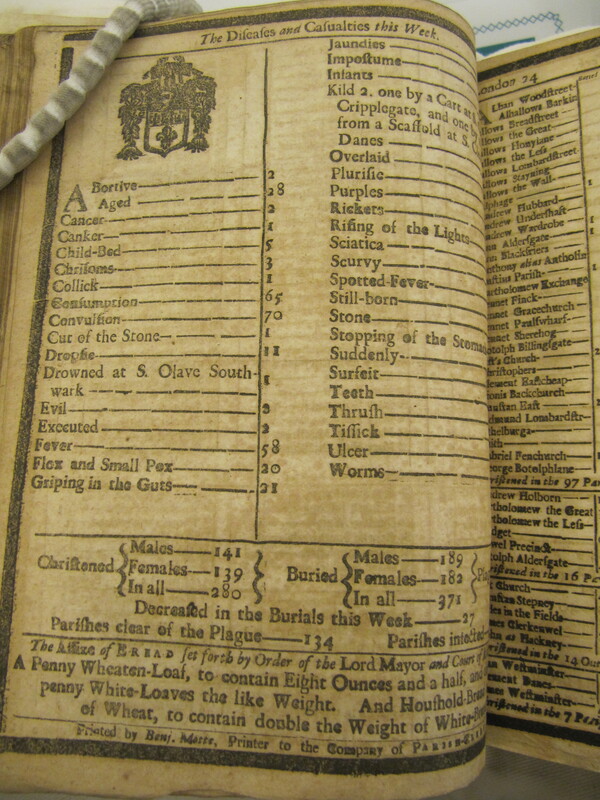 The Diseases and Casualties this Week.
Abortive 2
Aged 28
Cancer 2
Canker 1
Child-Bed 5
Chrisoms 3
Collick 1
Consumption 65
Convulsion 70
Cut of the Stone 1
Dropsie 11
Drowned at S. Olave South-
wark 1
Evil 2
Executed 2
Fever 58
Flox and Small Pox 20
Griping in the Guts 21
Jaundies
Impostume
Infants
Kild 2. one by a Cart at
Cripplegate, and one
from a Scaffold at S.
Danes
Overlaid
Plurisie
Purples
Rickets
Rising of the Lights
Sciatica
Scurvy
Spotted Fever
Still-born
Stone
Stopping of the Stomac
Suddenly
Surfeit
Teeth
Thrush
Tissick
Ulcer
Worms
Christened { Males 141
Females 139
In all 280 }
Buried { Males 189
Females 182
In all 371 }
Decreased in the Burials this Week 27
Parishes clear of the Plague 134 Parishes infected
The Assize of BREAD set forth by Order of the Lord Mayor and Court of
A Penny Wheaten-Loaf, to contain Eight Ounces and a half, and
penny White-Loaves the like Weight. And Houshold-Bread
of Wheat, to contain double the Weight of White-
Printed by Benj. Motte, Printer to the Company of PARISH-
London 24
lban Woodstreet
Alhallows Barkin
llows Breadstreet
llows the Great
llows Honylane
llows the Less
llows Lombardstreet
llows Stayning
llows the Wall
lphage
ndrew Hubbard
ndrew Undershaft
ndrew Wardrobe
nn Aldersgate
nn Blackfriers
nthony alias Antholin
ustins Parish
artholomew Exchange
ennet Finck
ennet Gracechurch
ennet Paulswharf
ennet Sherehog
otolph Billingsgate
Church
hristophers
lement Eastcheap
ionis Backchurch
unstan East
dmund Lombardstr
thelburga
aith
abriel Fenchurch
eorge Botolphlane
ristened in the 97 Par
drew Holborn
rtholomew the Great
rtholomew the Less
idget
wel Precinct
tolph Aldersgate
ristened in the 16 Pa
Church
nstan Stepney
les in the Fields
mes Clerkenwel
hn at Hackney
ristened in the 14 Out
Westminster
ement Danes
Westminster
ristened in the 7 Paris